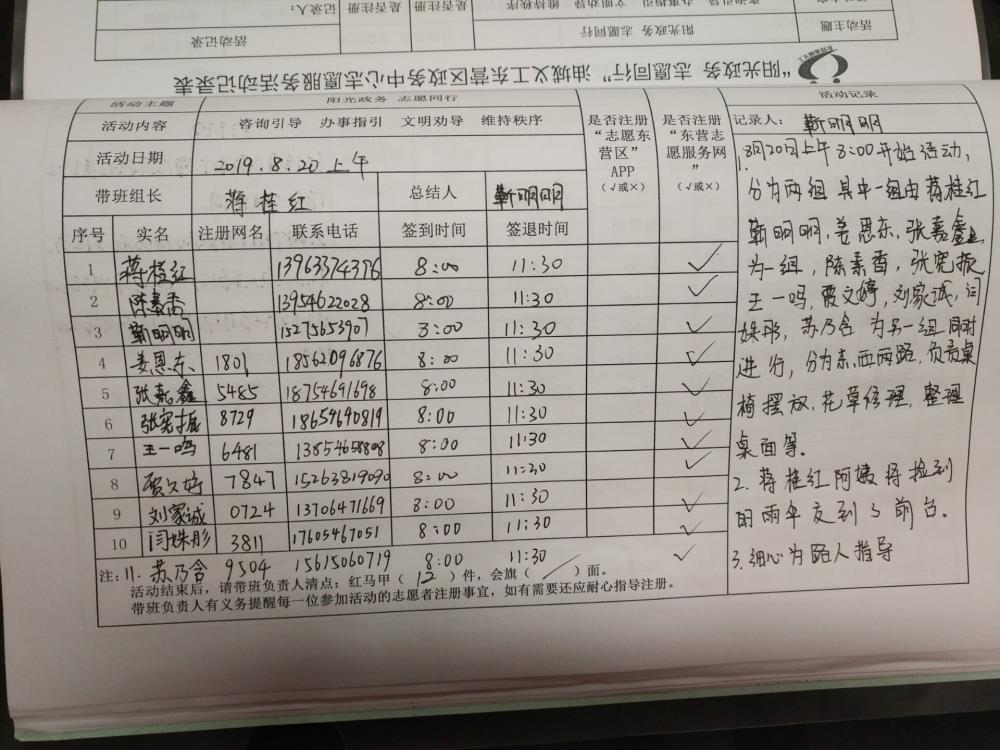 活动记录 是否注册 是否注册
记录人：
活动主题 阳光政务 志愿同行
咨询引导 办事指引 文明劝导 维持秩序
“阳光政务 志愿同行”油城义工东营区政务中心志愿服务活动记录表
活动主题 阳光政务 志愿同行 活动记录
活动内容 咨询引导 办事指引 文明劝导 维持秩序
是否注册“志愿东营区”APP（√或×）
是否注册“东营志愿服务网”（√或×）
活动日期 2019.8.20上午
带班组长 蒋桂红 总结人 靳明明
序号 实名 注册网名 联系电话 签到时间 签退时间
1 蒋桂红 13963374376 8:00 11:30 √
2 陈素香 13954622028 8:00 11:30 √
3 靳明明 15275653907 8:00 11:30 √
4 姜恩东 1801 18562096876 8:00 11:30 √
5 张嘉鑫 5485 18754691698 8:00 11:30 √
6 张宪振 8729 18659690819 8:00 11:30 √
7 王一鸣 6481 13854658808 8:00 11:30 √
8 贾文婷 7847 15263819090 8:00 11:30 √
9 刘家诚 0724 13706471669 8:00 11:30 √
10 闫姝彤 3811 17605467051 8:00 11:30 √
注：11. 苏乃含 9504 15615060719 8:00 11:30 √
活动结束后，请带班负责人清点：红马甲（12）件，会旗（／）面。
带班负责人有义务提醒每一位参加活动的志愿者注册事宜，如有需要还应耐心指导注册。
记录人：靳明明
1.8月20日上午8:00开始活动，
分为两组 其中一组由蒋桂红
靳明明，姜恩东，张嘉鑫
为一组，陈素香，张宪振
王一鸣，贾文婷，刘家诚，闫
姝彤，苏乃含 为另一组同时
进行，分为东、西两路，负责桌
椅摆放，花草修理，整理
桌面等.
2. 蒋桂红阿姨将捡到
的雨伞交到了前台.
3.细心为路人指导